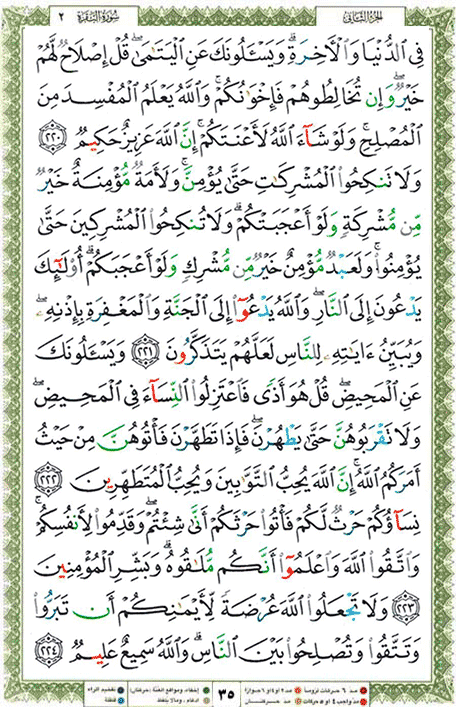 الجزء الثاني سورة البقرة ٢
فِى ٱلدُّنْيَا وَٱلْـَٔاخِرَةِ ۗ وَيَسْـَٔلُونَكَ عَنِ ٱلْيَتَـٰمَىٰ ۖ قُلْ إِصْلَاحٌ لَّهُمْ
خَيْرٌ ۖ وَإِن تُخَالِطُوهُمْ فَإِخْوَٰنُكُمْ ۚ وَٱللَّهُ يَعْلَمُ ٱلْمُفْسِدَ مِنَ
ٱلْمُصْلِحِ ۚ وَلَوْ شَآءَ ٱللَّهُ لَأَعْنَتَكُمْ ۚ إِنَّ ٱللَّهَ عَزِيزٌ حَكِيمٌ ٢٢٠
وَلَا تَنكِحُوا۟ ٱلْمُشْرِكَـٰتِ حَتَّىٰ يُؤْمِنَّ ۚ وَلَأَمَةٌ مُّؤْمِنَةٌ خَيْرٌ
مِّن مُّشْرِكَةٍ وَلَوْ أَعْجَبَتْكُمْ ۗ وَلَا تُنكِحُوا۟ ٱلْمُشْرِكِينَ حَتَّىٰ
يُؤْمِنُوا۟ ۚ وَلَعَبْدٌ مُّؤْمِنٌ خَيْرٌ مِّن مُّشْرِكٍ وَلَوْ أَعْجَبَكُمْ ۗ أُو۟لَـٰٓئِكَ
يَدْعُونَ إِلَى ٱلنَّارِ ۖ وَٱللَّهُ يَدْعُوٓا۟ إِلَى ٱلْجَنَّةِ وَٱلْمَغْفِرَةِ بِإِذْنِهِۦ ۖ
وَيُبَيِّنُ ءَايَـٰتِهِۦ لِلنَّاسِ لَعَلَّهُمْ يَتَذَكَّرُونَ ٢٢١ وَيَسْـَٔلُونَكَ
عَنِ ٱلْمَحِيضِ ۖ قُلْ هُوَ أَذًى فَٱعْتَزِلُوا۟ ٱلنِّسَآءَ فِى ٱلْمَحِيضِ ۖ
وَلَا تَقْرَبُوهُنَّ حَتَّىٰ يَطْهُرْنَ ۖ فَإِذَا تَطَهَّرْنَ فَأْتُوهُنَّ مِنْ حَيْثُ
أَمَرَكُمُ ٱللَّهُ ۚ إِنَّ ٱللَّهَ يُحِبُّ ٱلتَّوَّٰبِينَ وَيُحِبُّ ٱلْمُتَطَهِّرِينَ ٢٢٢
نِسَآؤُكُمْ حَرْثٌ لَّكُمْ فَأْتُوا۟ حَرْثَكُمْ أَنَّىٰ شِئْتُمْ ۖ وَقَدِّمُوا۟ لِأَنفُسِكُمْ ۚ
وَٱتَّقُوا۟ ٱللَّهَ وَٱعْلَمُوٓا۟ أَنَّكُم مُّلَـٰقُوهُ ۗ وَبَشِّرِ ٱلْمُؤْمِنِينَ
٢٢٣ وَلَا تَجْعَلُوا۟ ٱللَّهَ عُرْضَةً لِّأَيْمَـٰنِكُمْ أَن تَبَرُّوا۟
وَتَتَّقُوا۟ وَتُصْلِحُوا۟ بَيْنَ ٱلنَّاسِ ۗ وَٱللَّهُ سَمِيعٌ عَلِيمٌ ٢٢٤
مد ٦ حركات لزوماً مد ٢ أو ٤ أو ٦ جوازاً
مد واجب ٤ أو ٥ حركات مد حركتان
٣٥
إخفاء، ومواقع الغنة (حركتان) تفخيم الراء
إدغام، وما لا يلفظ قلقلة